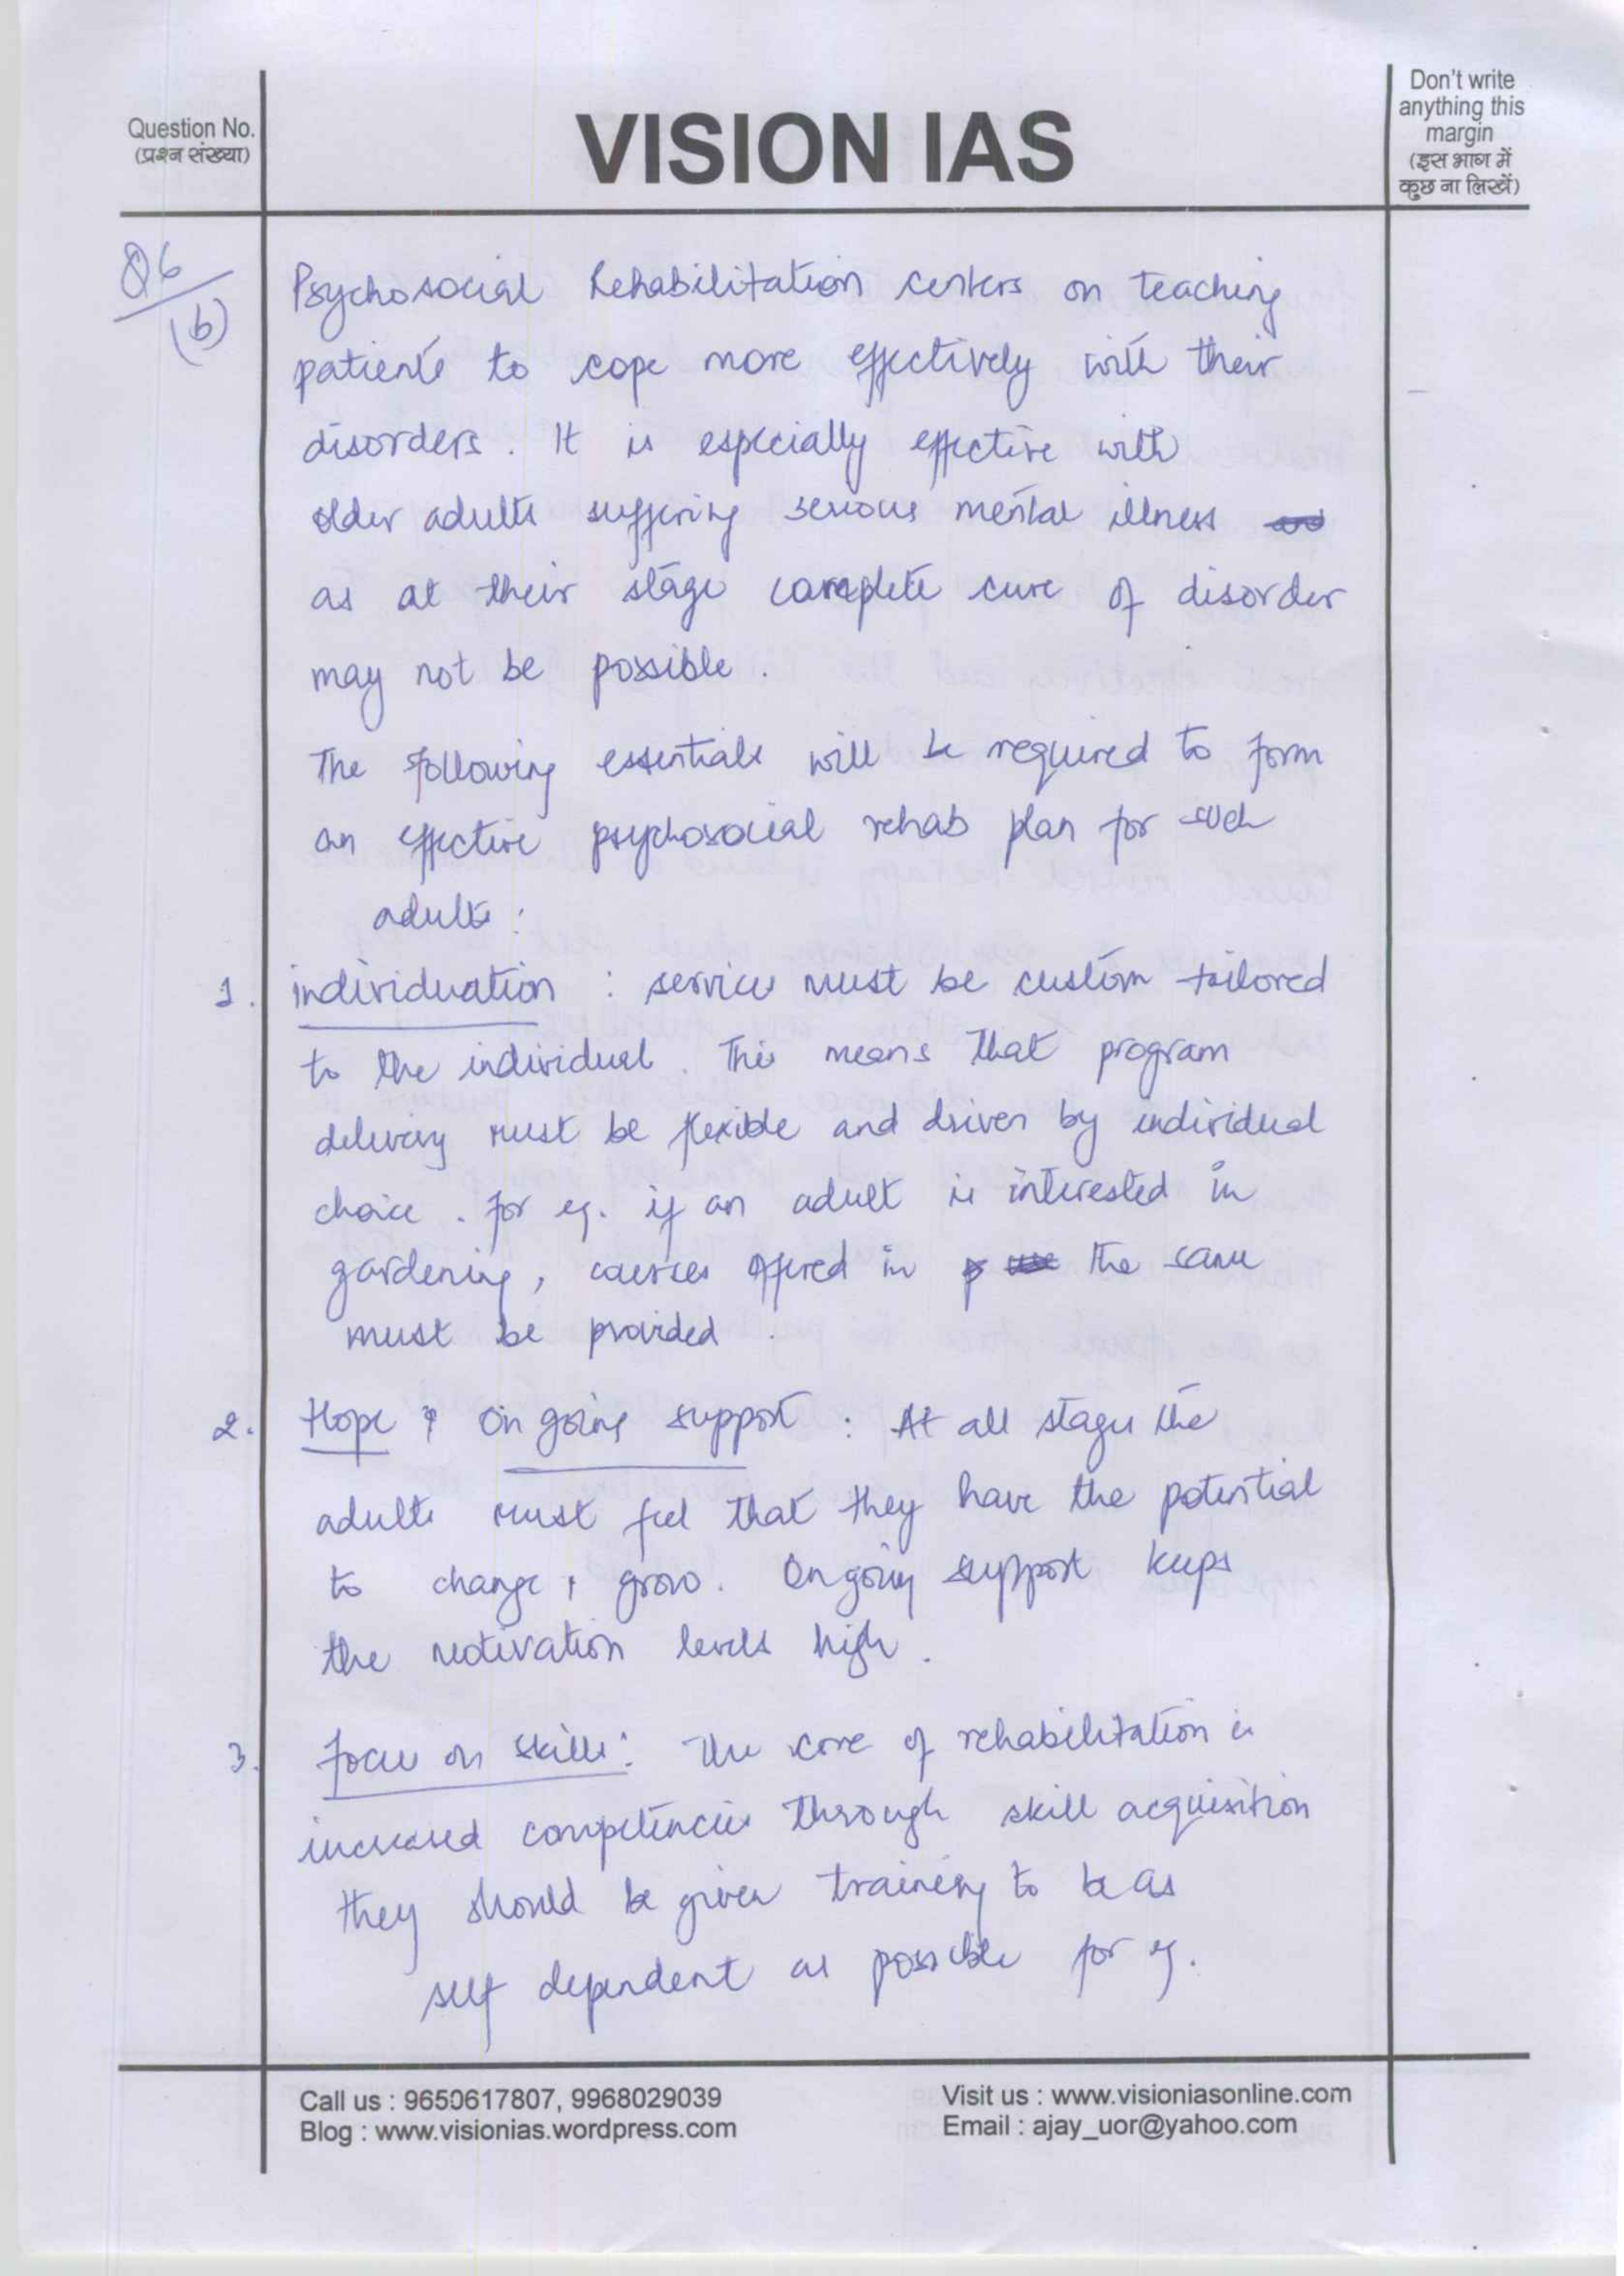 Question No.
(प्रश्न संख्या)
VISION IAS
Don't write
anything this
margin
(इस भाग में
कुछ ना लिखें)
Q6
(b)
Psychosocial Rehabilitation centers on teaching
patients to cope more effectively with their
disorders. It is especially effective with
older adults suffering serious mental illness and
as at their stage complete cure of disorder
may not be possible.
The following essentials will be required to form
an effective psychosocial rehab plan for such
adults:
1. individuation : service must be custom tailored
to the individual. This means that program
delivery must be flexible and driven by individual
choice. for eg. if an adult is interested in
gardening, courses offered in the same
must be provided.
2. Hope & On going support : At all stages the
adults must feel that they have the potential
to change & grow. Ongoing support keeps
the motivation levels high.
3. focus on skills: The core of rehabilitation is
increased competencies through skill acquisition
they should be given training to be as
self dependent as possible for eg.
Call us : 9650617807, 9968029039
Blog : www.visionias.wordpress.com
Visit us : www.visioniasonline.com
Email : ajay_uor@yahoo.com